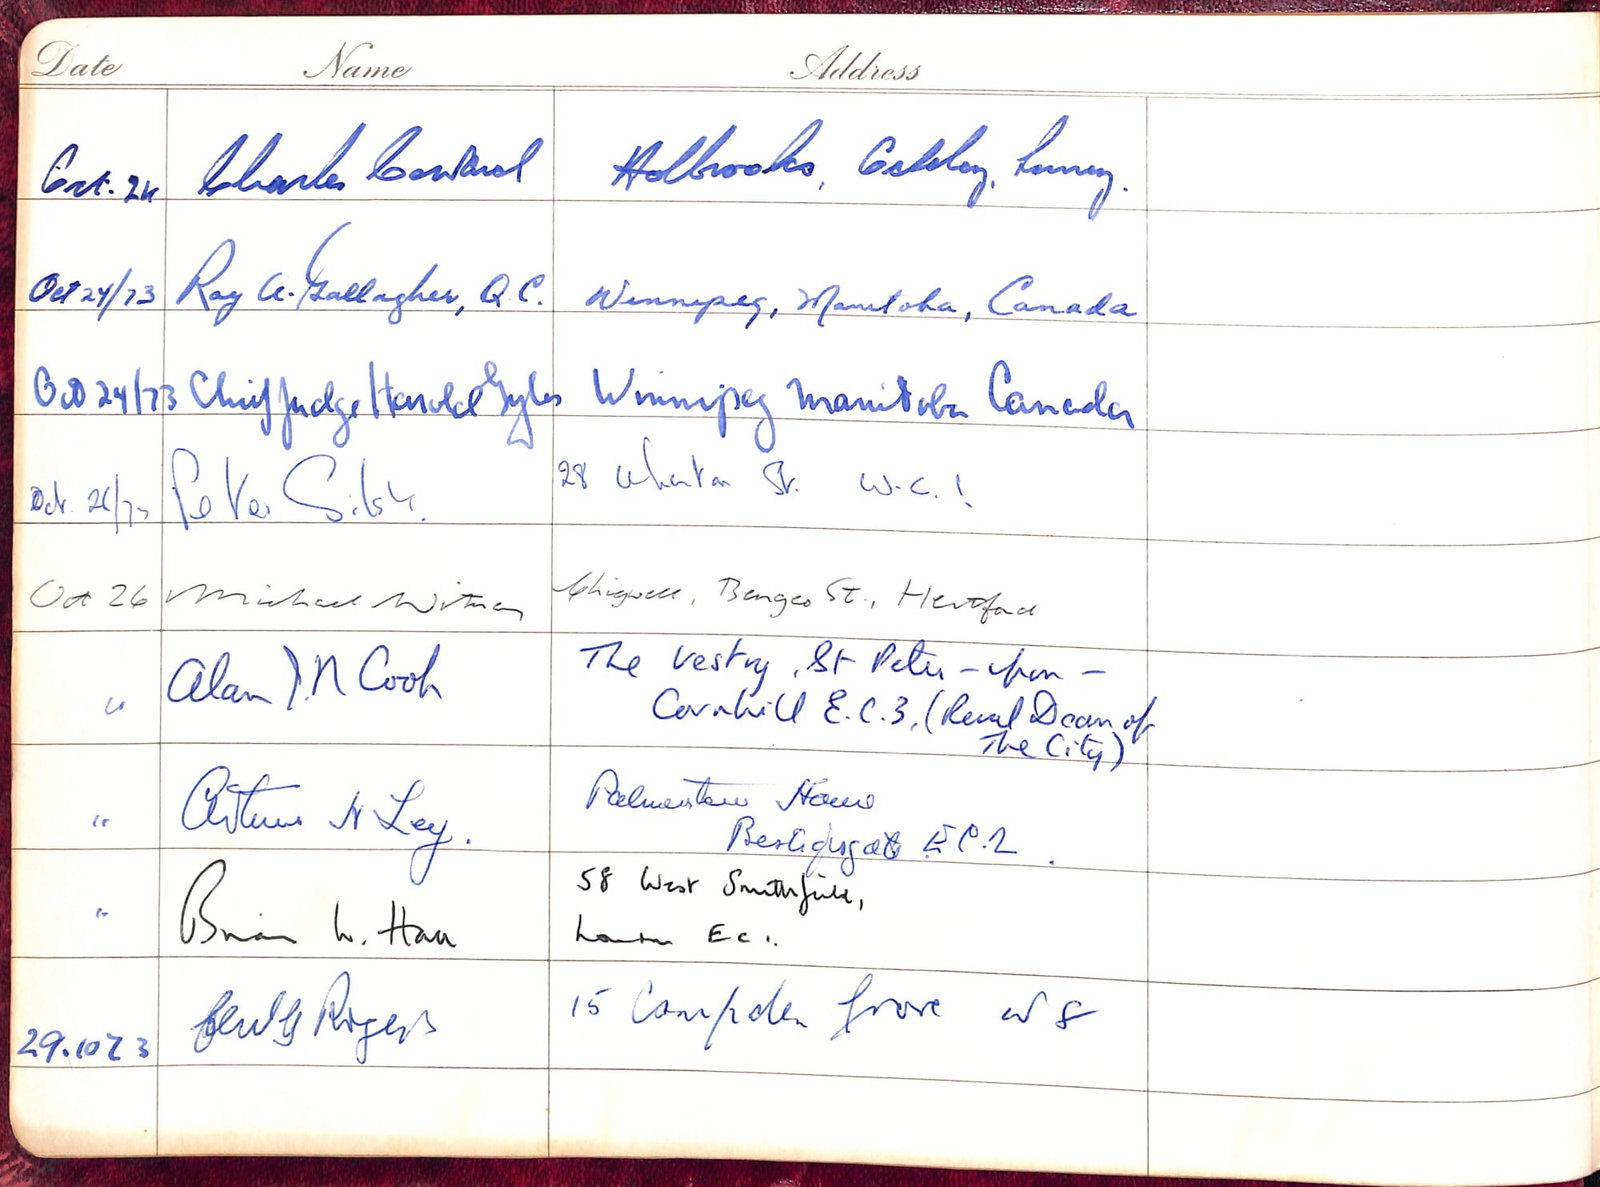 Date Name Address
Oct. 24 Charles Coward Holbrooks, Ockley, Surrey.
Oct 24/73 Roy A. Gallagher, Q.C. Winnipeg, Manitoba, Canada
Oct 24/73 Chief Judge Harold Gyles Winnipeg Manitoba Canada
Oct. 26/73 Peter 28 Wharton St. W.C.1
Oct 26 Michael Chigwell, Bengeo St., Hertford
" Alan J.N Cook The Vestry, St Peter-upon-
Cornhill E.C.3, (Rural Dean of
The City)
" Arthur H Ley. Palmerston House
Bishopsgate E C.2.
" Brian W. 58 West Smithfield,
London EC1.
29.10 73 Rogers 15 Campden Grove W8